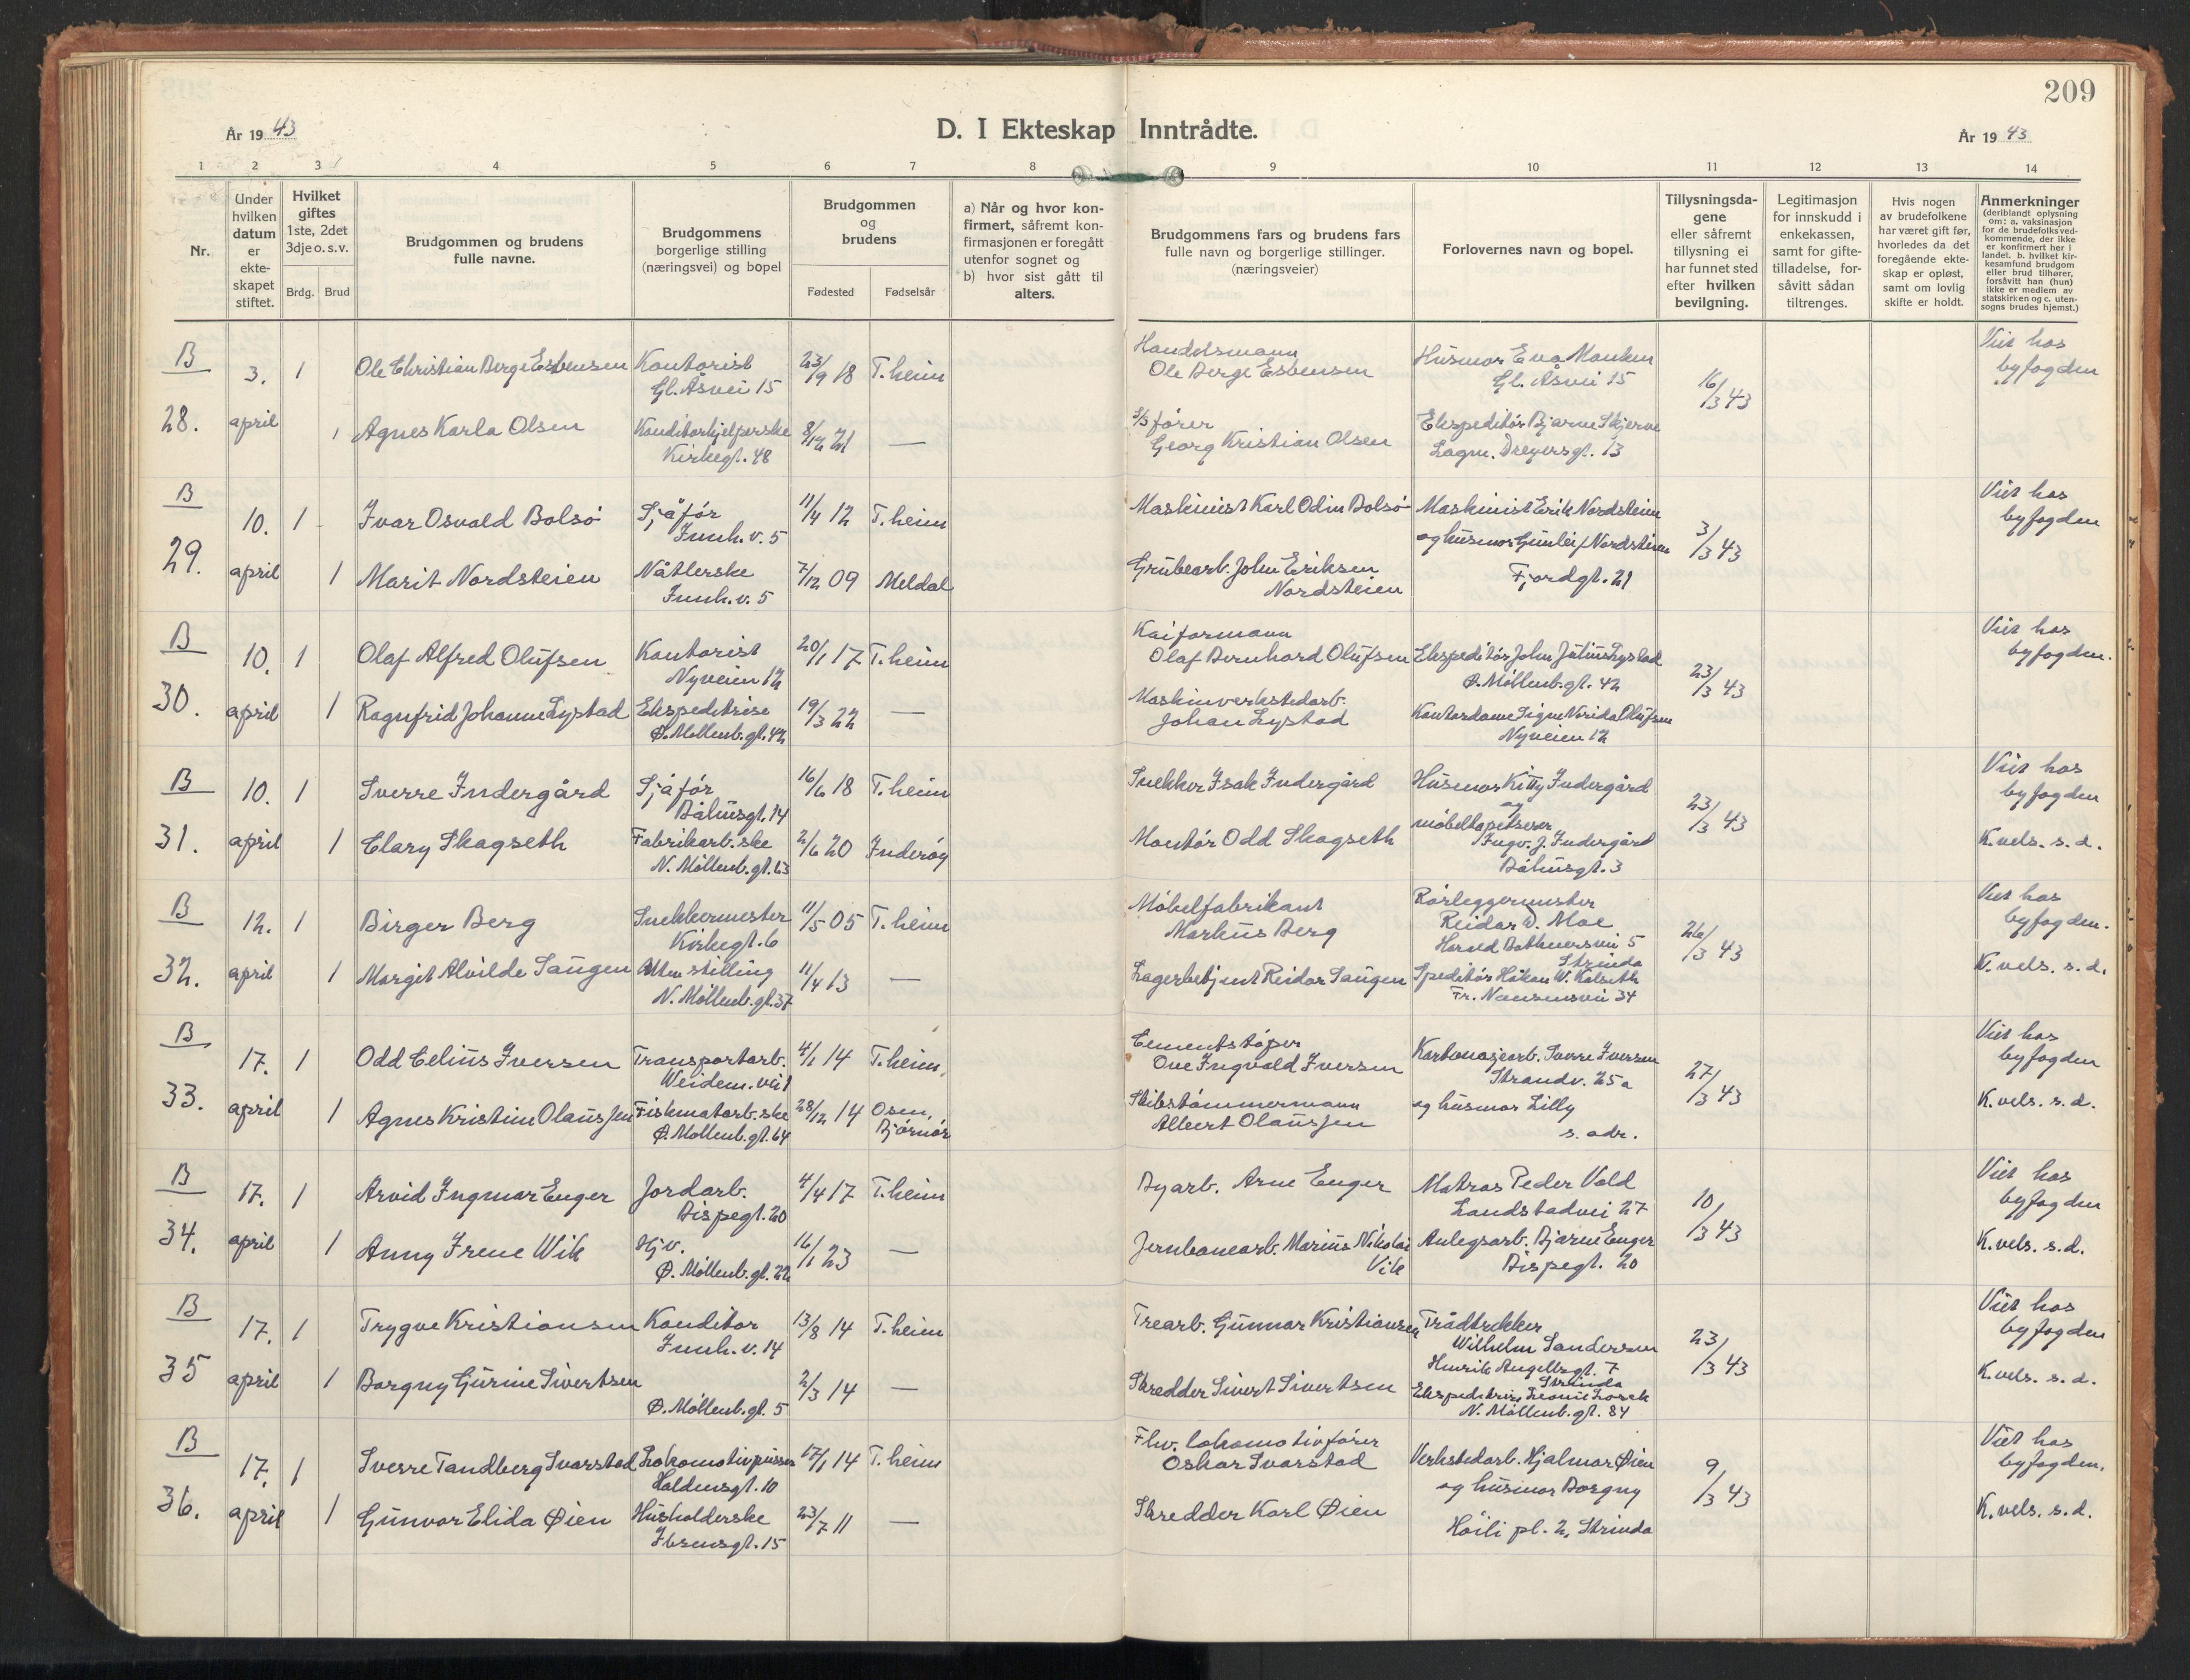 209
År 1943
D. I Ekteskap Inntrådte.
År 1943
1 2 3 4 5 6 7 8 9 10 11 12 13 14
Nr.
Under hvilken datum er ekte-skapet stiftet.
Hvilket giftes 1ste, 2det 3dje o. s. v.
Brdg. Brud
Brudgommen og brudens fulle navne.
Brudgommens borgerlige stilling (næringsvei) og bopel
Brudgommen og brudens
Fødested Fødselsår
a) Når og hvor kon-firmert, såfremt kon-firmasjonen er foregått utenfor sognet og
b) hvor sist gått til alters.
Brudgommens fars og brudens fars fulle navn og borgerlige stillinger. (næringsveier)
Forlovernes navn og bopel.
Tillysningsda-gene eller såfremt tillysning ei har funnet sted efter hvilken bevilgning.
Legitimasjon for innskudd i enkekassen, samt for gifte-tilladelse, for-såvitt sådan tiltrenges.
Hvis nogen av brudefolkene har været gift før, hvorledes da det foregående ekte-skap er opløst, samt om lovlig skifte er holdt.
Anmerkninger (deriblandt oplysning om: a. vaksinasjon for de brudefolksved-kommende, der ikke er konfirmert her i landet. b. hvilket kir-kesamfund brudgom eller brud tilhører, forsåvitt han (hun) ikke er medlem av statskirken og c. uten-sogns brudes hjemst.)
B
28.
3. april
1
Ole Christian Berge Esbensen
Kontorist
Gl. Åsvei 15
23/9 18 T.heim
Handelsmann
Ole Berge Esbensen
Husmor Eva Monken
Gl. Åsvei 15
16/3 43
Viet hos
byfogden
1
Agnes Karla Olsen
Konditorhjelperske
Kirkegt. 48
8/12 21 —
s/s fører
Georg Kristian Olsen
Ekspeditør Bjarne Skjerve
Lagm. Dreyersgt. 13
B
29.
10. april
1
Ivar Osvald Bolsø
Sjåfør
Innh. v. 5
11/4 12 T.heim
Maskinist Karl Odin Bolsø
Maskinist Erik Nordsteien
og husmor Gunleif Nordsteien
Fjordgt. 21
3/3 43
Viet hos
byfogden
1
Marit Nordsteien
Nåtlerske
Innh. v. 5
7/12 09 Meldal
Grubearb. John Eriksen
Nordsteien
B
30.
10. april
1
Olaf Alfred Olufsen
Kontorist
Nyveien 12
20/1 17 T.heim
Kaiformann
Olaf Bernhard Olufsen
Ekspeditør John Julius Lystad
Ø. Møllenb. gt. 42
23/3 43
Viet hos
byfogden.
1
Ragnfrid Johanne Lystad
Ekspeditrise
Ø. Møllenb. gt. 42
19/3 22 —
Maskinverkstedarb.
Johan Lystad
Kontordame Signe Norida Olufsen
Nyveien 12
B
31.
10. april
1
Sverre Indergård
Sjåfør
Båhusgt. 14
16/6 18 T.heim
Snekker Isak Indergård
Husmor Kitty Indergård
og
møbeltapetserer
Ingv. J. Indergård
Båhusgt. 3
23/3 43
Viet hos
byfogden
1
Clary Skagseth
Fabrikarb.ske
N. Møllenb. gt. 63
2/6 20 Inderøy
Montør Odd Skagseth
K. vels. s. d.
B
32.
12. april
1
Birger Berg
Snekkermester
Kirkegt. 6
11/5 05 T.heim
Møbelfabrikant
Markus Berg
Rørleggermester
Reidar W. Moe
Harald Bothnersvei 5
Strinda
26/3 43
Viet hos
byfogden.
1
Margit Alvilde Saugen
Uten stilling
N. Møllenb. gt. 37
11/4 13 —
Lagerbetjent Reidar Saugen
Speditør Håkon W. Kalseth
Fr. Nansensvei 34
K. vels. s. d.
B
33.
17. april
1
Odd Celius Iversen
Transportarb.
Weidem. vei 1
4/1 14 T.heim
Cementstøper
Ove Ingvald Iversen
Kartonasjearb. Sverre Iversen
Strandv. 25a
27/3 43
Viet hos
byfogden
1
Agnes Kristine Olaussen
Fiskmatarb.ske
Ø. Møllenb. gt. 64
28/12 14 Osen, Bjørnør
Skibstømmermann
Albert Olaussen
og husmor Lilly
s. adr.
K. vels. s. d.
B
34.
17. april
1
Arvid Ingmar Enger
Jordarb.
Bispegt. 20
4/4 17 T.heim
Byarb. Arne Enger
Matros Peder Vold
Landstadvei 27
10/3 43
Viet hos
byfogden
1
Anny Irene Wik
Hjv.
Ø. Møllenb. gt. 22
16/1 23 —
Jernbanearb. Marius Nikolai
Vik
Anlegsarb. Bjarne Enger
Bispegt. 20
K. vels. s. d.
B
35
17. april
1
Trygve Kristiansen
Konditor
Innh. v. 14
13/8 14 T.heim
Trearb. Gunnar Kristiansen
Trådtrekker
Wilhelm Sandersen
Henrik Angellsgt. 7
Strinda
23/3 43
Viet hos
byfogden
1
Borgny Gurine Sivertsen
Ø. Møllenb. gt. 5
2/3 14 —
Skredder Sivert Sivertsen
Ekspeditrise
N. Møllenb. gt. 84
K. vels. s. d.
B
36.
17. april
1
Sverre Tandberg Svarstad
Lokomotivpusser
Holdensgt. 10
17/1 14 T.heim
Fhv. lokomotivfører
Oskar Svarstad
Verkstedarb. Hjalmar Øien
og husmor Borgny
Høili pl. 2, Strinda
9/3 43
Viet hos
byfogden.
1
Gunvor Elida Øien
Husholderske
Ibsensgt. 15
23/7 11 —
Skredder Karl Øien
K. vels. s. d.